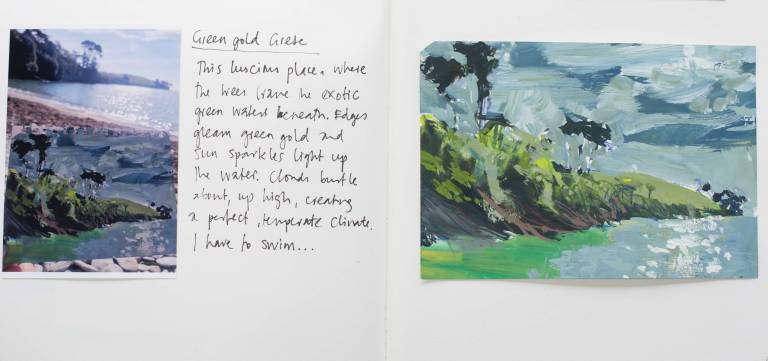 Green gold Grebe
This luscious place. Where
the trees leave the exotic
green waters beneath. Edges
gleam green gold and
sun sparkles light up
the water. Clouds bustle
about, up high, creating
a perfect, temperate climate.
I have to swim...